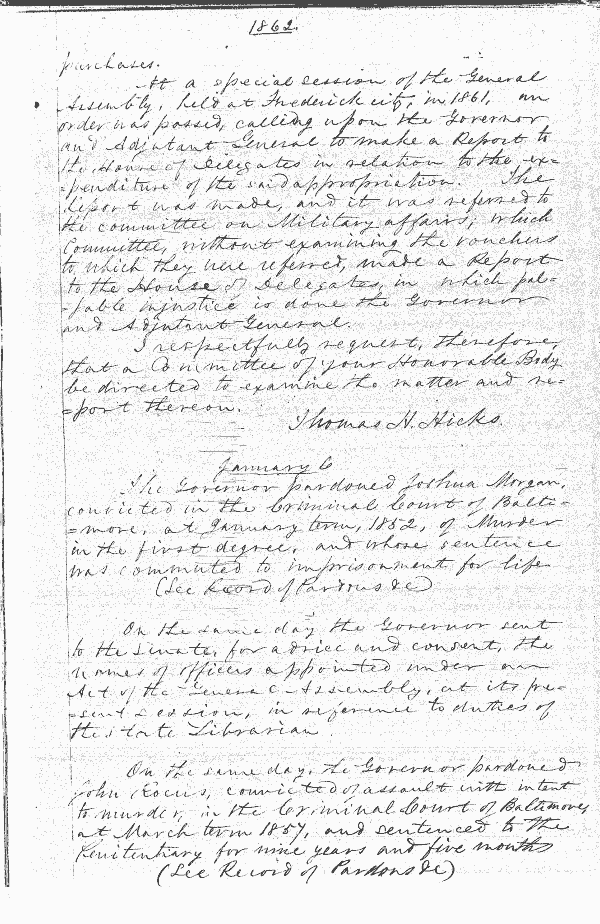 1862.
purchases.
At a special session of the General
Assembly, held at Frederick city, in 1861, an
order was passed, calling upon the Governor
and Adjutant General to make a Report to
the House of Delegates in relation to the ex=
=penditure of the said appropriation. The
Report was made, and it was referred to
the committee on Military affairs; which
Committee, without examining the vouchers
to which they were referred, made a Report
to the House of Delegates, in which pal=
=pable injustice is done the Governor
and Adjutant General.
I respectfully request, therefore,
that a Committee of your Honorable Body
be directed to examine the matter and re=
=port thereon.
Thomas H. Hicks.
January 6
The Governor pardoned Joshua Morgan,
convicted in the Criminal Court of Balti=
=more, at January term, 1852, of Murder
in the first degree, and whose sentence
was commuted to imprisonment for life
(See Record of Pardons &c)
On the same day the Governor sent
to the Senate, for advice and consent, the
names of officers appointed under an
Act of the General Assembly, at its pre=
=sent session, in reference to duties of
the State Librarian.
On the same day, the Governor pardoned
John, convicted of assault with intent
to murder, in the Criminal Court of Baltimore,
at March term 1857, and sentenced to the
Penitentiary for nine years and five months
(See Record of Pardons &c)